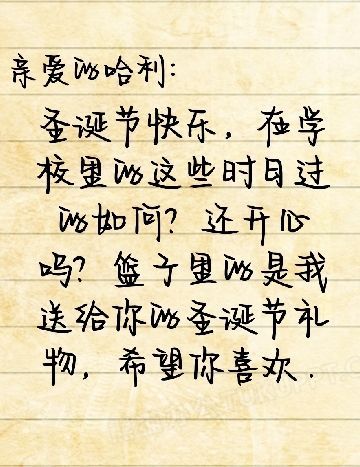 亲爱的哈利:
圣诞节快乐，在学
校里的这些时日过
的如何？还开心
吗？篮子里的是我
送给你的圣诞节礼
物，希望你喜欢.